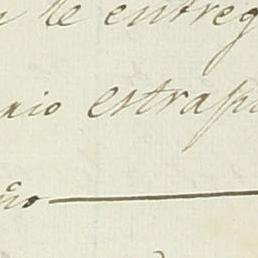 le entreg
aio estrap
ño